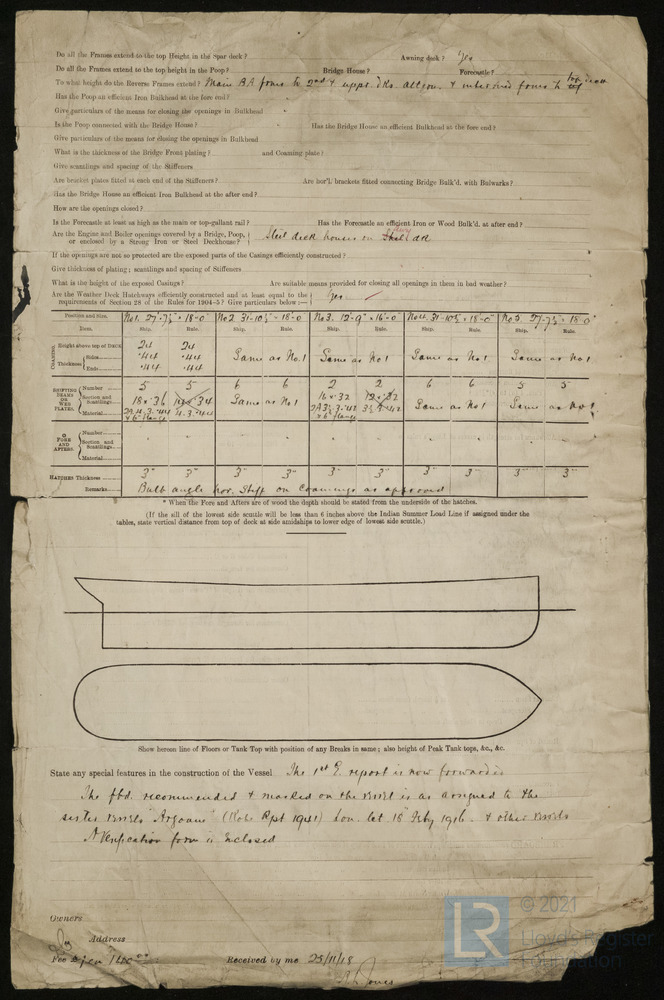 Do all the Frames extend to the top Height in the Spar deck ? Awning deck ? Yes
Do all the Frames extend to the top height in the Poop ? Bridge House ? Forecastle ?
To what height do the Reverse Frames extend ? Main BA frms to 2nd & uppr dks. altern. &
top deck
Has the Poop an efficient Iron Bulkhead at the fore end ?
Give particulars of the means for closing the openings in Bulkhead
Is the Poop connected with the Bridge House ? Has the Bridge House an efficient Bulkhead at the fore end ?
Give particulars of the means for closing the openings in Bulkhead
What is the thickness of the Bridge Front plating ? and Coaming plate ?
Give scantlings and spacing of the Stiffeners
Are bracket plates fitted at each end of the Stiffeners ? Are hor'l. brackets fitted connecting Bridge Bulk'd. with Bulwarks ?
Has the Bridge House an efficient Iron Bulkhead at the after end ?
How are the openings closed ?
Is the Forecastle at least as high as the main or top-gallant rail ? Has the Forecastle an efficient Iron or Wood Bulk'd. at after end ?
Are the Engine and Boiler openings covered by a Bridge, Poop,
or enclosed by a Strong Iron or Steel Deckhouse ? Steel deck houses on dk
If the openings are not so protected are the exposed parts of the Casings efficiently constructed ?
Give thickness of plating ; scantlings and spacing of Stiffeners
What is the height of the exposed Casings ? Are suitable means provided for closing all openings in them in bad weather ?
Are the Weather Deck Hatchways efficiently constructed and at least equal to the
requirements of Section 28 of the Rules for 1904-5 ? Give particulars below :— Yes
Position and Size. No 1. 27'-7½" × 18'-0 No 2 31'-10½" × 18'-0 No 3. 12'-9" × 16'-0 No 4 31'-10½" × 18'-0" No 5 27'-7½" × 18'-0"
Item. Ship. Rule. Ship. Rule. Ship. Rule. Ship. Rule. Ship. Rule.
COAMING.
Height above top of DECK 24 24
Thickness Sides .44 .44 Same as No. 1 Same as No 1 Same as No 1 Same as No 1
Ends .44 .44
SHIFTING BEAMS OR WEB PLATES.
Number 5 5 6 6 2 2 6 6 5 5
Section and Scantlings 18 × .36 Same as No 1 16 × .32 Same as No 1 Same as No 1
Material
FORE AND AFTERS.
Number
Section and Scantlings
Material
HATCHES Thickness 3" 3" 3" 3" 3" 3" 3" 3" 3" 3"
Remarks Bulb angle hor. Stiff on Coamings as approved
* When the Fore and Afters are of wood the depth should be stated from the underside of the hatches.
(If the sill of the lowest side scuttle will be less than 6 inches above the Indian Summer Load Line if assigned under the
tables, state vertical distance from top of deck at side amidships to lower edge of lowest side scuttle.)
Show hereon line of Floors or Tank Top with position of any Breaks in same ; also height of Peak Tank tops, &c., &c.
State any special features in the construction of the Vessel The 1st E. report is now forwarded
The fbd. recommended & marked on the vessel is as assigned to the
sister vessels "Argoans" (Kobe Rpt 1941) Lon. let 18 Feby 1916 & other vessels
A Verification form is Enclosed
Owners
Address
Fee Yen Received by me 25/11/18
Jones
LR
© 2021
Lloyd's Register
Foundation